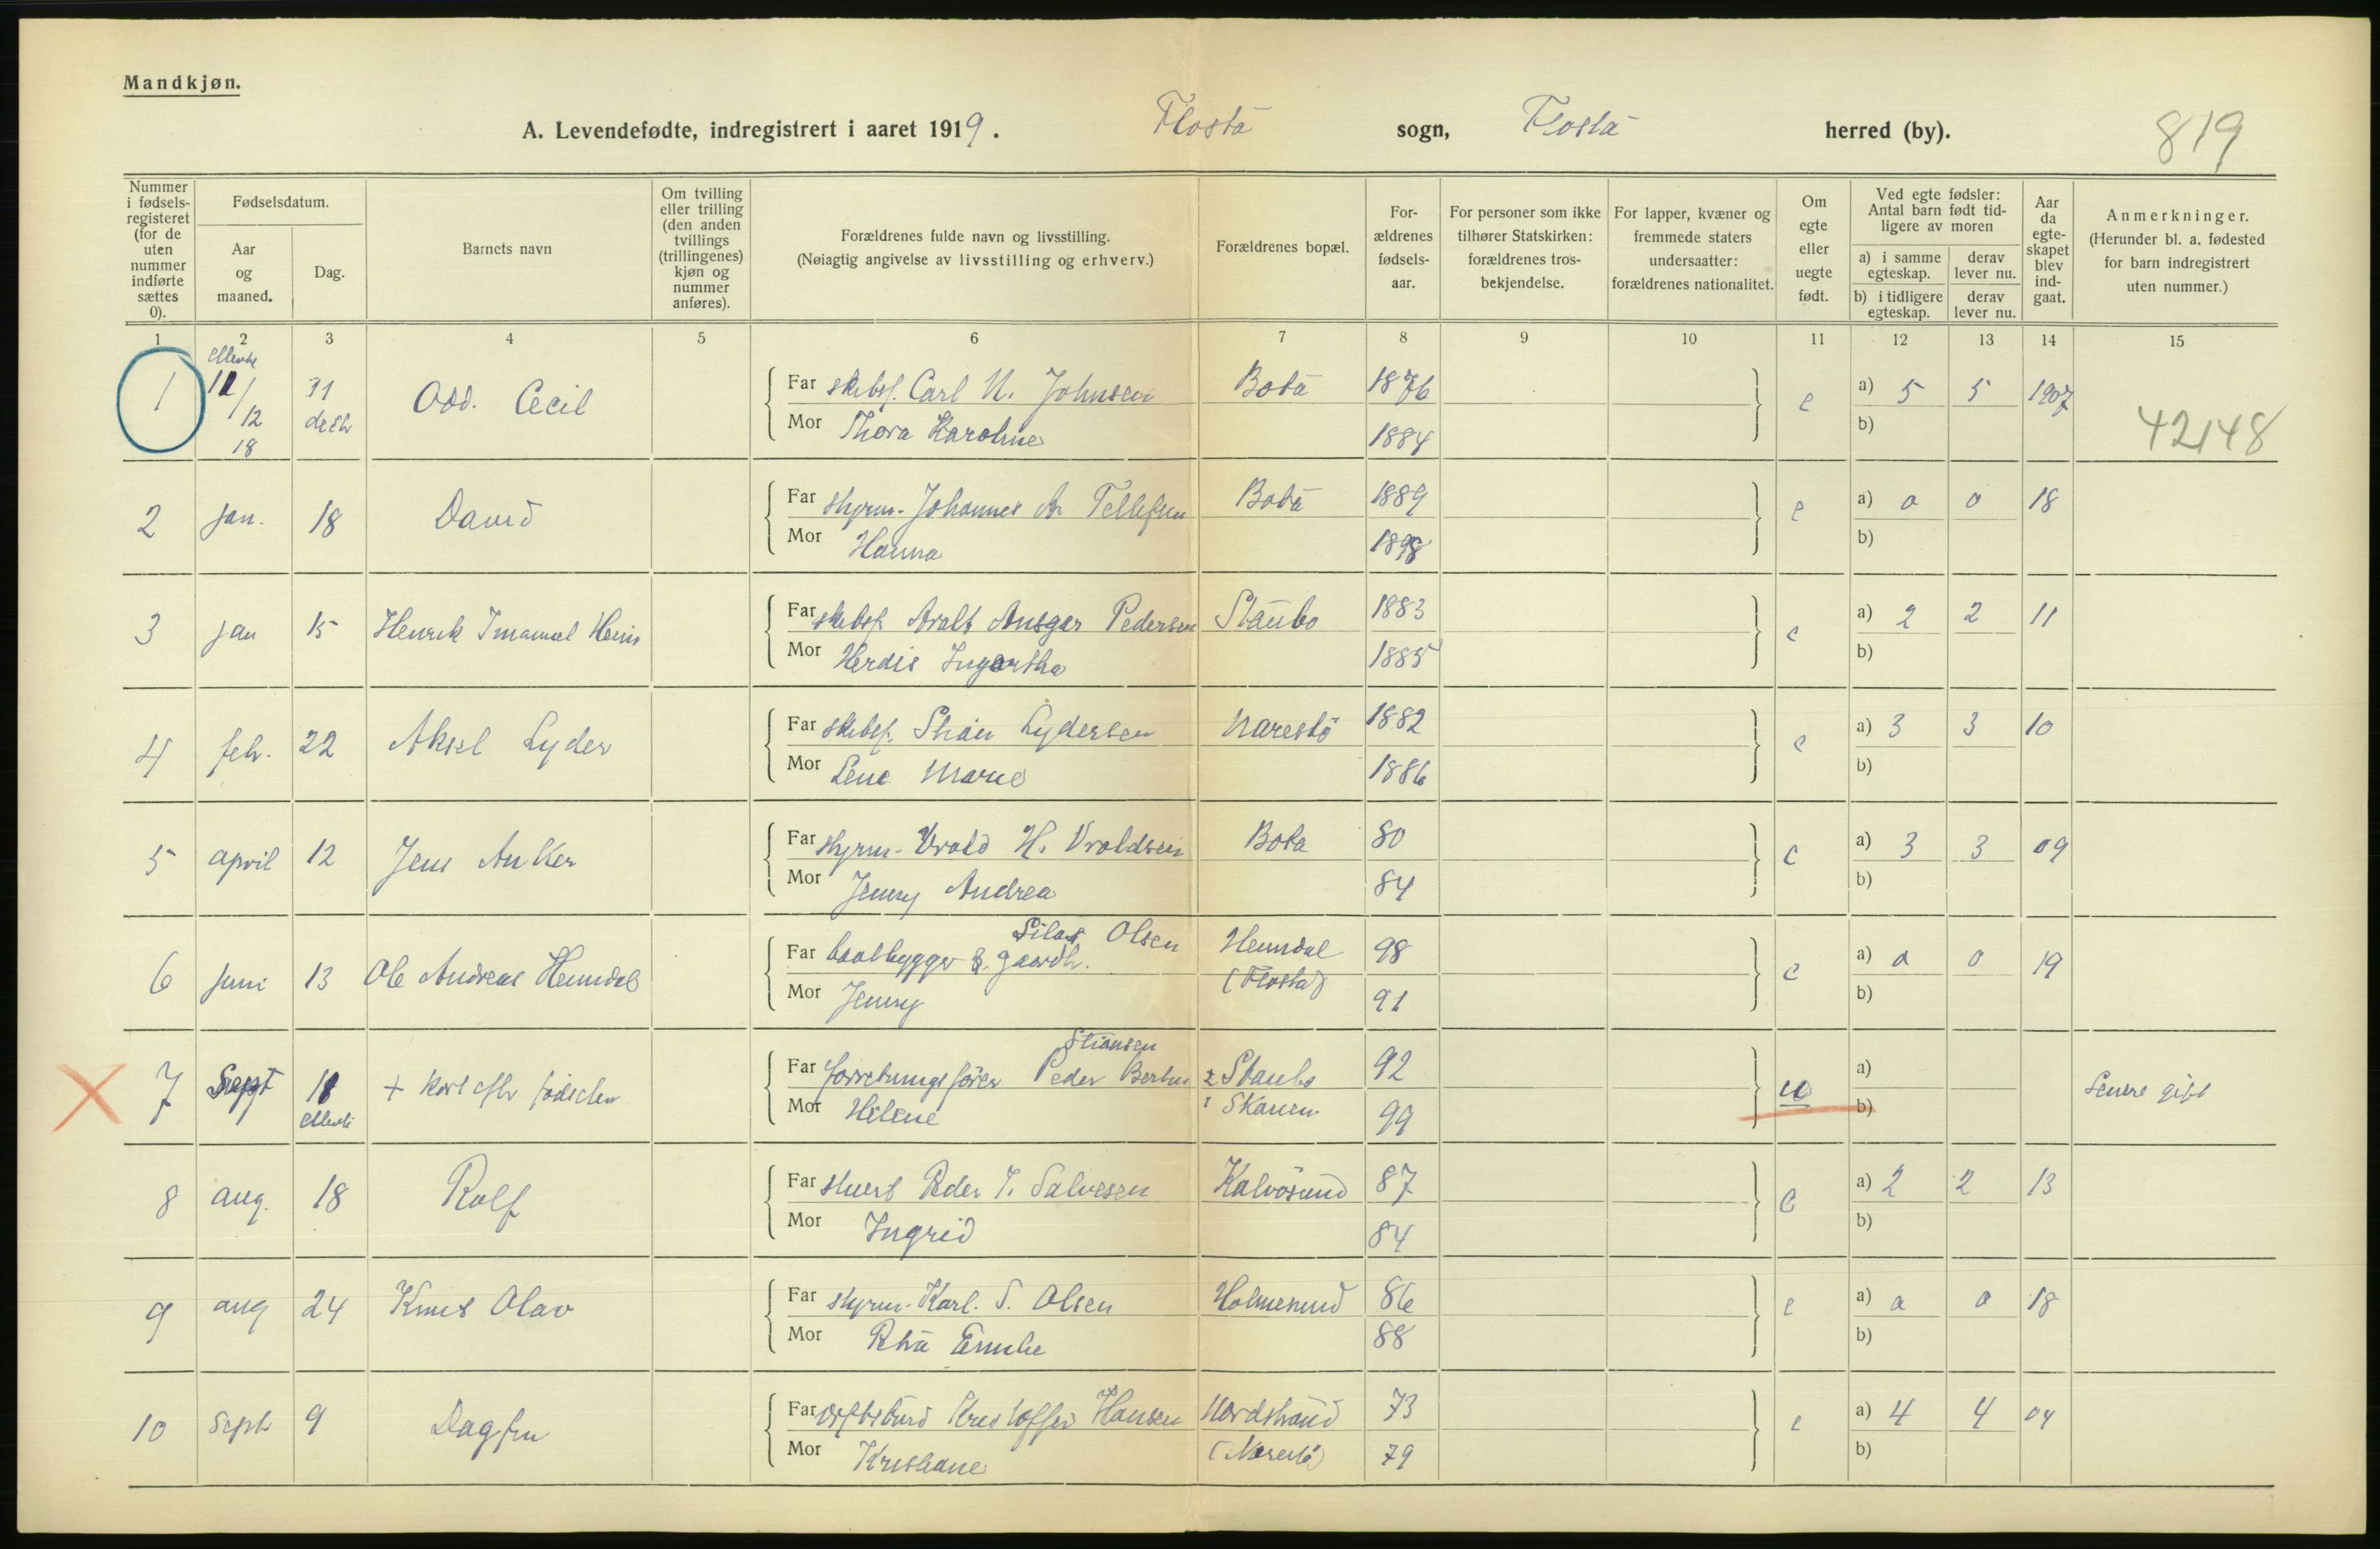 Mandkjøn.
A. Levendefødte, indregistrert i aaret 1919. Flosta sogn, Flosta herred (by). 819
Nummer i fødsels-registeret (for de uten nummer indførte sættes 0).
Fødselsdatum.
Aar og maaned.
Dag.
Barnets navn
Om tvilling eller trilling (den anden tvillings (trillingenes) kjøn og nummer anføres).
Forældrenes fulde navn og livsstilling.
(Nøiagtig angivelse av livsstilling og erhverv.)
Forældrenes bopæl.
For-ældrenes fødsels-aar.
For personer som ikke tilhører Statskirken: forældrenes tros-bekjendelse.
For lapper, kvæner og fremmede staters undersaatter: forældrenes nationalitet.
Om egte eller uegte født.
Ved egte fødsler: Antal barn født tid-ligere av moren
a) i samme egteskap.
derav lever nu.
b) i tidligere egteskap.
derav lever nu.
Aar da egte-skapet blev ind-gaat.
Anmerkninger.
(Herunder bl. a. fødested for barn indregistrert uten nummer.)
1 2 3 4 5 6 7 8 9 10 11 12 13 14 15
1 12 18 Odd. Cecil Far skibsf. Carl N. Johnsen Bota 1876 e a) 5 5 1907
Mor Thora Karoline 1884 b) 42148
2 jan. 18 David Far styrm. Johannes A. Tellefsen Bota 1889 e a) 0 0 18
Mor Hanna 1898 b)
3 jan 15 Henrik Imanuel Far skibsf. Aralt Ansgar Pedersen Staubo 1883 e a) 2 2 11
Mor Herdis Ingartha 1885 b)
4 feb. 22 Aksel Lyder Far skibsf. Lydersen Narestö 1882 e a) 3 3 10
Mor Lene Marie 1886 b)
5 april 12 Jens Anker Far styrm. Vrold H. Vroldsen Bota 80 e a) 3 3 09
Mor Jenny Andrea 84 b)
Silas Olsen
6 juni 13 Ole Andreas Hemdal Far baatbygger & gaardb. Hemdal (Flosta) 98 e a) 0 0 19
Mor Jenny 91 b)
Stiansen
7 Sept 11 + kort eftr fødselen Far forretningsfører Peder 2 Staubo 92 u a) Senere gift
ellevte Mor Helene 1 Skauen 99 b)
8 aug. 18 Rolf Far stuert Peder T. Salvesen Kalvösund 87 e a) 2 2 13
Mor Ingrid 84 b)
9 aug 24 Knut Olav Far styrm. Karl. S. Olsen Holmesund 86 e a) 0 0 18
Mor Petra Emilie 88 b)
10 Septb 9 Dagfin Far Kristoffer Hansen Nordstrand 73 e a) 4 4 04
Mor Kristiane (Narestö) 79 b)